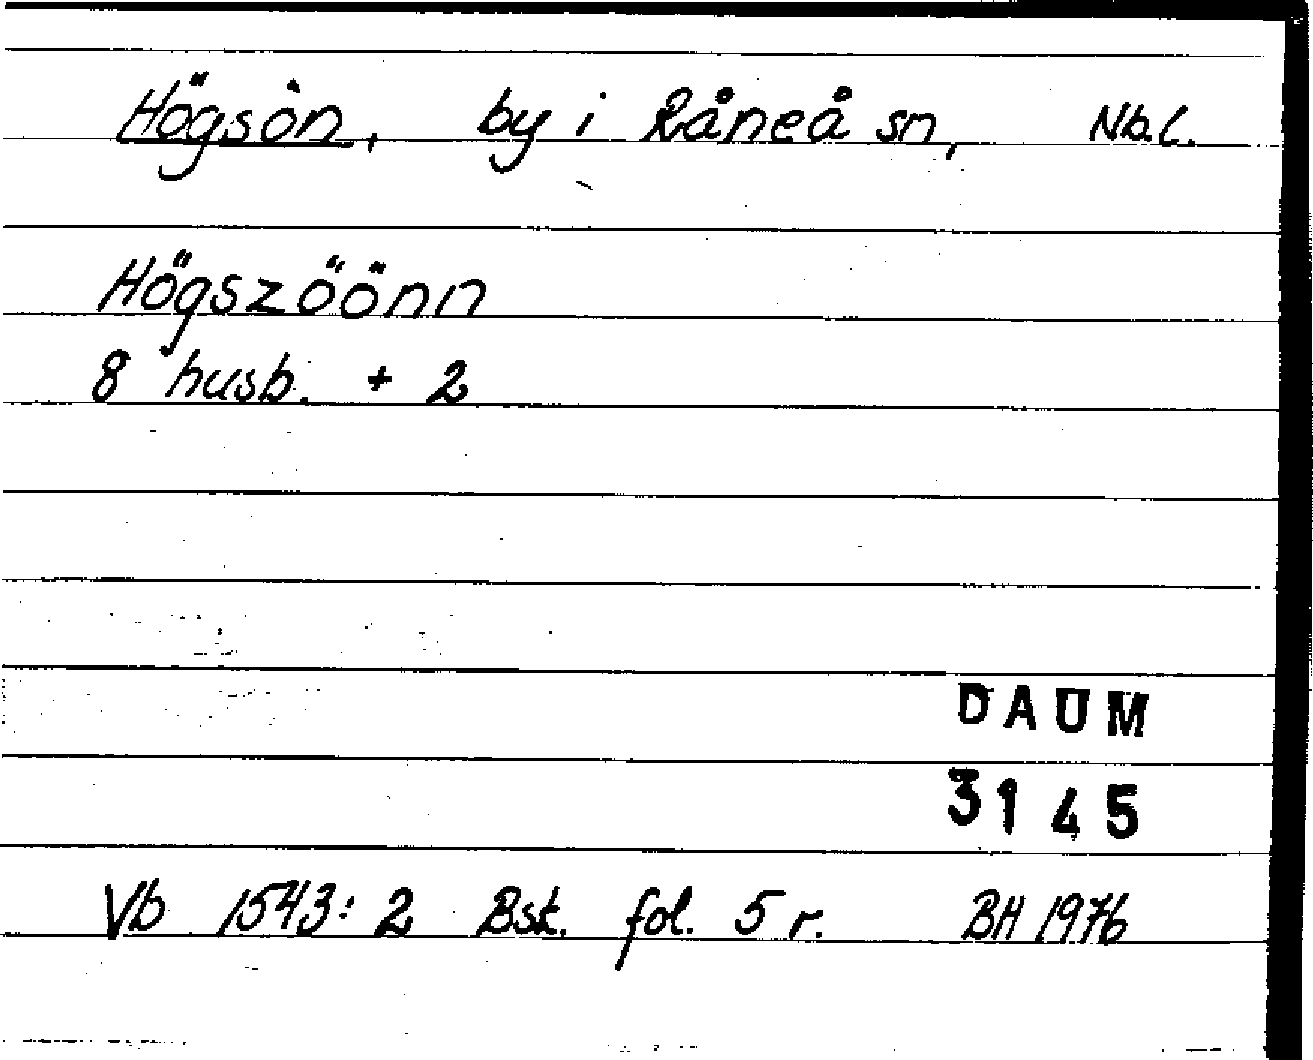 Högsön, by i Råneå sn, Nb.l.
Högszöönn
8 husb. + 2
DAUM
3145
Vb 1543:2 Bsk. fol. 5 r. BH 1976